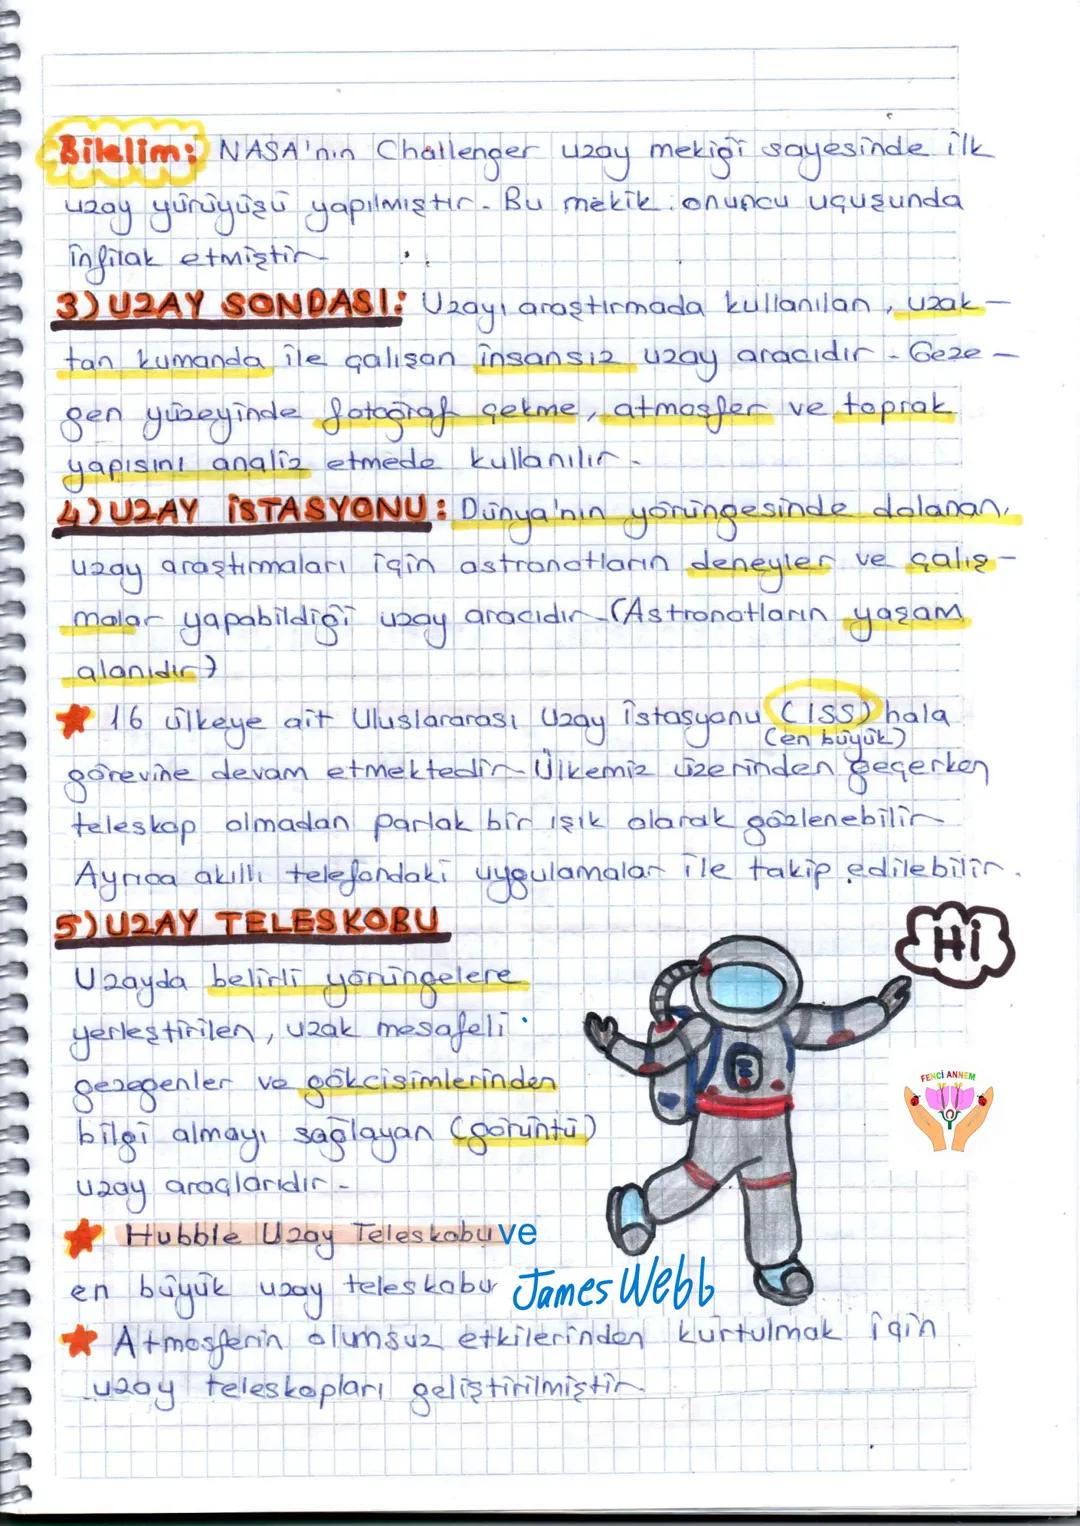 Bilelim: NASA'nın Challenger uzay mekiği sayesinde ilk
uzay yürüyüşü yapılmıştır. Bu mekik onuncu uçuşunda
infilak etmiştir.
3) UZAY SONDASI: Uzayı araştırmada kullanılan, uzak-
tan kumanda ile çalışan insansız uzay aracıdır. Geze-
gen yüzeyinde fotoğraf çekme, atmosfer ve toprak
yapısını analiz etmede kullanılır.
4) UZAY İSTASYONU: Dünya'nın yörüngesinde dolanan,
uzay araştırmaları için astronotların deneyler ve çalış-
malar yapabildiği uzay aracıdır. (Astronotların yaşam
alanıdır)
16 ülkeye ait Uluslararası Uzay İstasyonu (ISS) hala
(en büyük)
görevine devam etmektedir. Ülkemiz üzerinden geçerken
teleskop olmadan parlak bir ışık olarak gözlenebilir.
Ayrıca akıllı telefondaki uygulamalar ile takip edilebilir.
5) UZAY TELESKOBU
Hi
Uzayda belirli yörüngelere
yerleştirilen, uzak mesafeli
gezegenler ve gökcisimlerinden
FENCİ ANNEM
bilgi almayı sağlayan (görüntü)
uzay araçlarıdır.
Hubble Uzay Teleskobu ve
en büyük uzay teleskobu James Webb
Atmosferin olumsuz etkilerinden kurtulmak için
uzay teleskopları geliştirilmiştir.